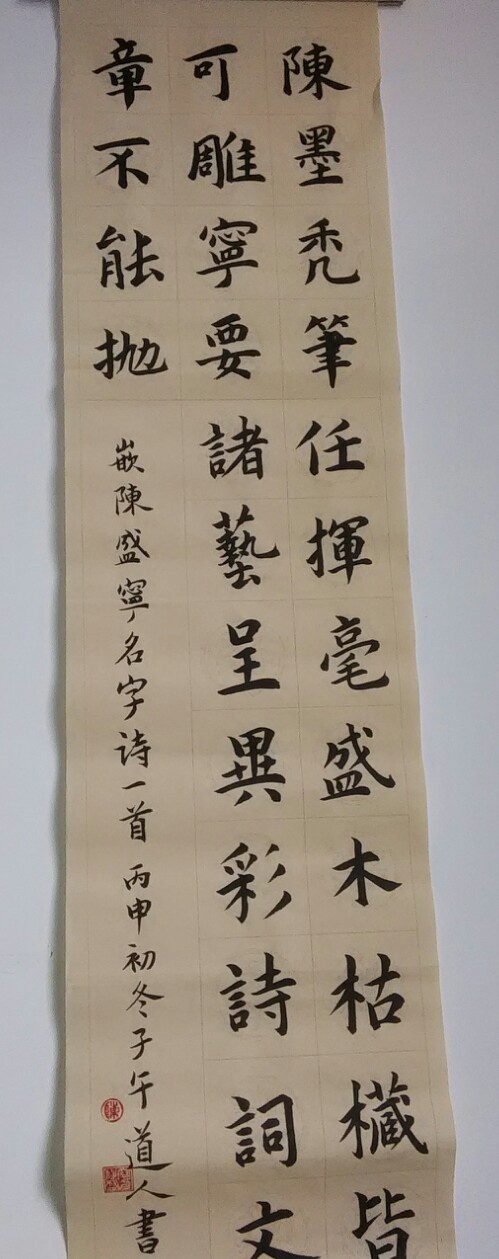 陳墨禿筆任揮毫盛木枯檥皆
可雕寧要諸藝呈異彩詩詞文
章不能拋
嵌陳盛寧名字詩一首 丙申初冬子午道人書